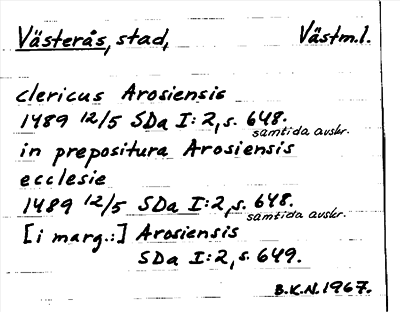 Västerås, stad, Västm.l.
clericus Arosiensis
1489 12/5 SDa I:2, s. 648.
samtida avskr.
in prepositura Arosiensis
ecclesie
1489 12/5 SDa I:2, s. 648.
samtida avskr.
[i marg.:] Arosiensis
SDa I:2, s. 649.
B.K.N. 1967.